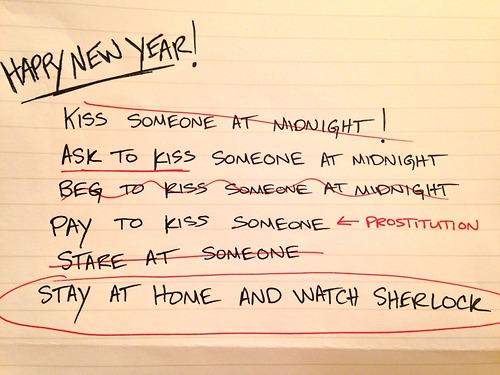 HAPPY NEW YEAR!
KISS SOMEONE AT MIDNIGHT!
ASK TO KISS SOMEONE AT MIDNIGHT
BEG TO KISS SOMEONE AT MIDNIGHT
PAY TO KISS SOMEONE ← PROSTITUTION
STARE AT SOMEONE
STAY AT HOME AND WATCH SHERLOCK